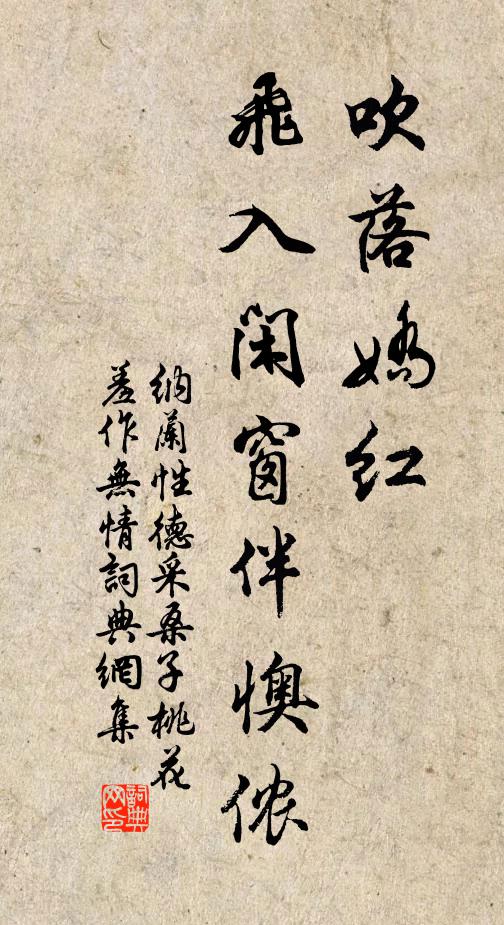 吹落嬌红
飛入閑窗伴懊侬
納蘭性德采桑子桃花
羞作無情詞典網集
詞典网印